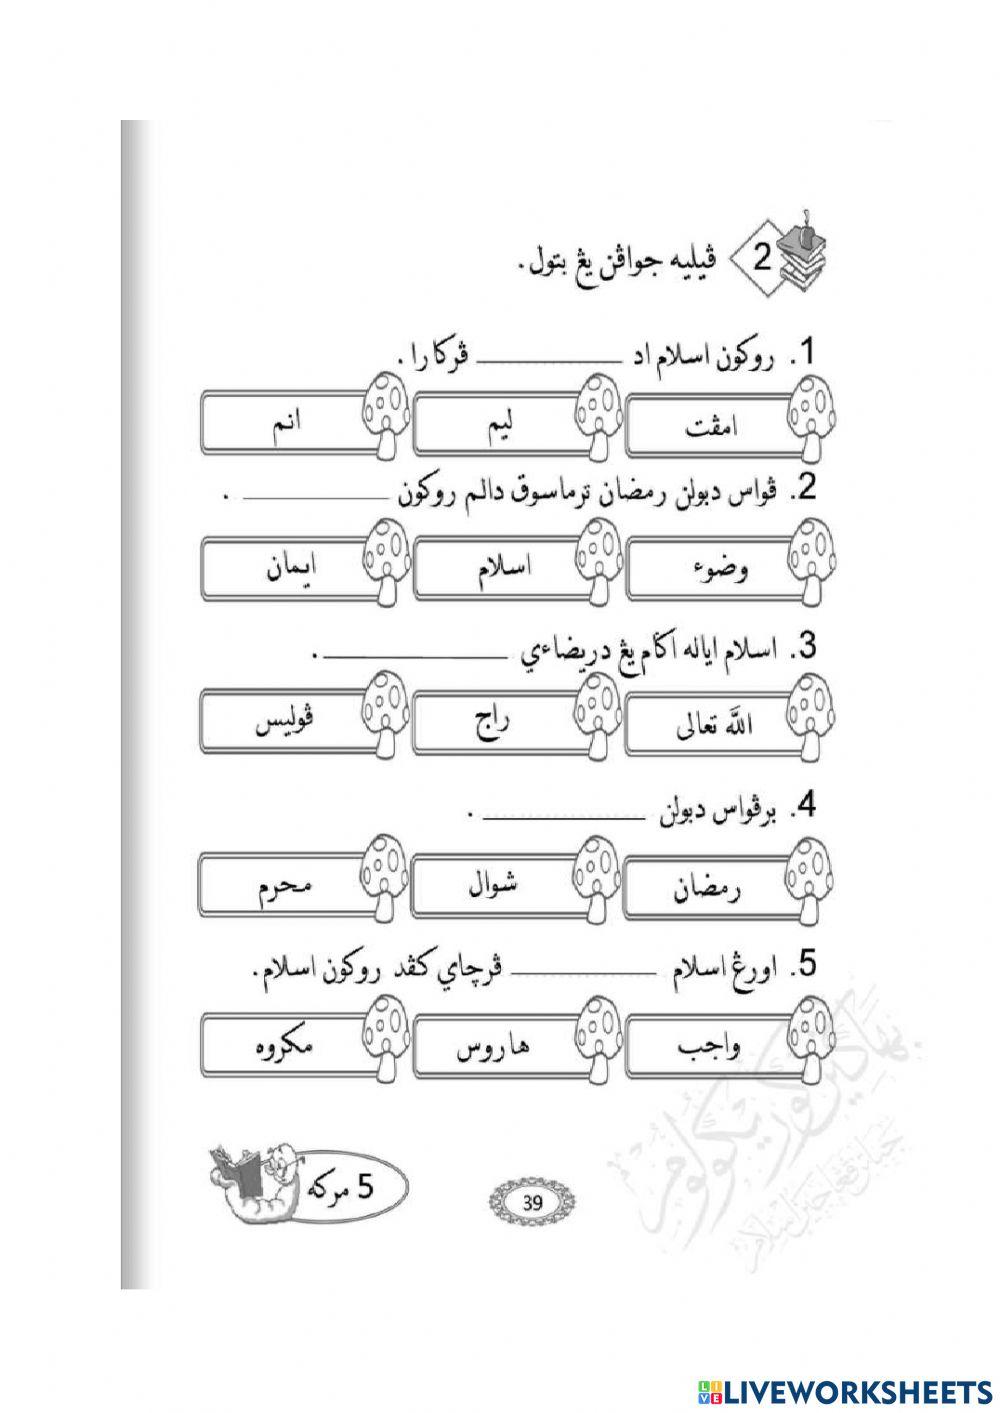 2 ڤيليه جواڤن يڠ بتول.
1. روكون اسلام اد ________ ڤركارا .
امڤت ليم انم
2. ڤواس دبولن رمضان ترماسوق دالم روكون ________ .
وضوء اسلام ايمان
3. اسلام اياله اݢام يڠ دريضاءي ________ .
الله تعالى راج ڤوليس
4. برڤواس دبولن ________ .
رمضان شوال محرم
5. اورڠ اسلام ________ ڤرچاي كڤد روكون اسلام.
واجب هاروس مكروه
5 مركه
39
LIVEWORKSHEETS